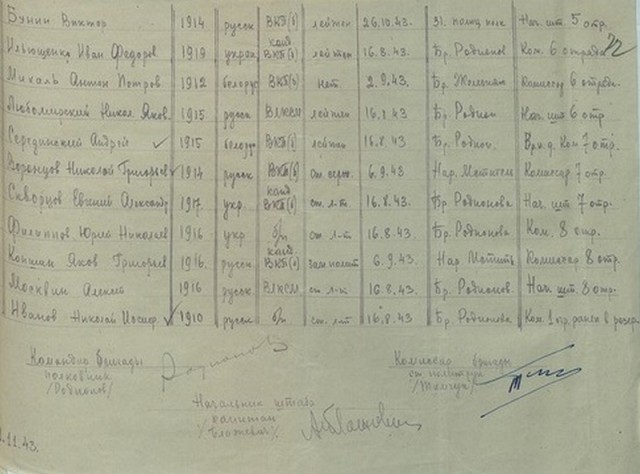 Бунин Виктор 1914 русск ВКП(б) лейтен 26.10.43. 31. полиц полк Нач. шт 5 отр.
22
Ильющенко Иван Федоров 1919 украин канд ВКП(б) лейтен 16.8.43. Бр. Родионов Ком. 6 отряда
Михаль Антон Петров 1912 белорус ВКП(б) нет 2.9.43. Бр. Железняк Комиссар 6 отряда
Любомирский Никол Яков. 1915 русск ВЛКСМ лейтен 16.8.43 Бр. Родион Нач. шт 6 отр
Серединский Андрей 1915 белорус ВКП(б) лейтен 16.8.43 Бр. Родион. Врид. Ком 7 отр.
Воронцов Николай Григорьев 1914 русск ВКП(б) ст. серж. 6.9.43 Комиссар 7 отр.
Скворцов Евгений Александр 1917. укр. канд ВКП(б) ст. л-т 16.8.43. Бр. Родионова Нач. шт 7 отр.
Филиппов Юрий Николаев 1916 укр б/п ст. л-т 16.8.43. Бр. Родионова Ком. 8 отр.
Коншин Яков Григорьев 1916. русск. канд. ВКП(б) зам полит 6.9.43 Комиссар 8 отр.
Москвин Алексей 1916 русск ВЛКСМ ст. л-т 16.8.43. Бр. Родионов. Нач. шт. 8 отр.
Иванов Николай Иосиф. 1910 русск б/п ст. л-т 16.8.43 Бр. Родионова Ком. 1 отр. ранен в резер.
Командир бригады
полковник
/Родионов/
Родионов
Комиссар бригады
ст политрук
Начальник штаба
капитан
/Блажевич/
11.43.